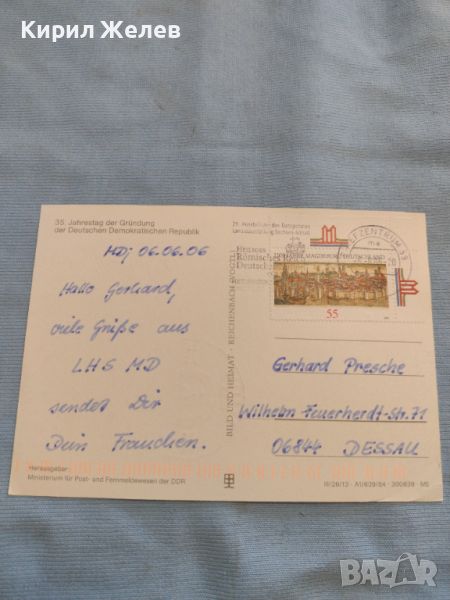 Кирил Желев
35. Jahrestag der Gründung
der Deutschen Demokratischen Republik
MDj 06.06.06
Hallo Gerhard,
viele Grüße aus
LHS MD
sendet Dir
Dein Frauchen.
Herausgeber:
Ministerium für Post- und Fernmeldewesen der DDR
BILD UND HEIMAT · REICHENBACH (VOGTL)
Römische
Deutsche
BRIEFZENTRUM 39
DEUTSCHLAND
55
Gerhard Presche
Wilhelm-Feuerherdt-Str. 71
06844 DESSAU
III/26/13 · A1/639/84 · 300639 · M5
BAZAR